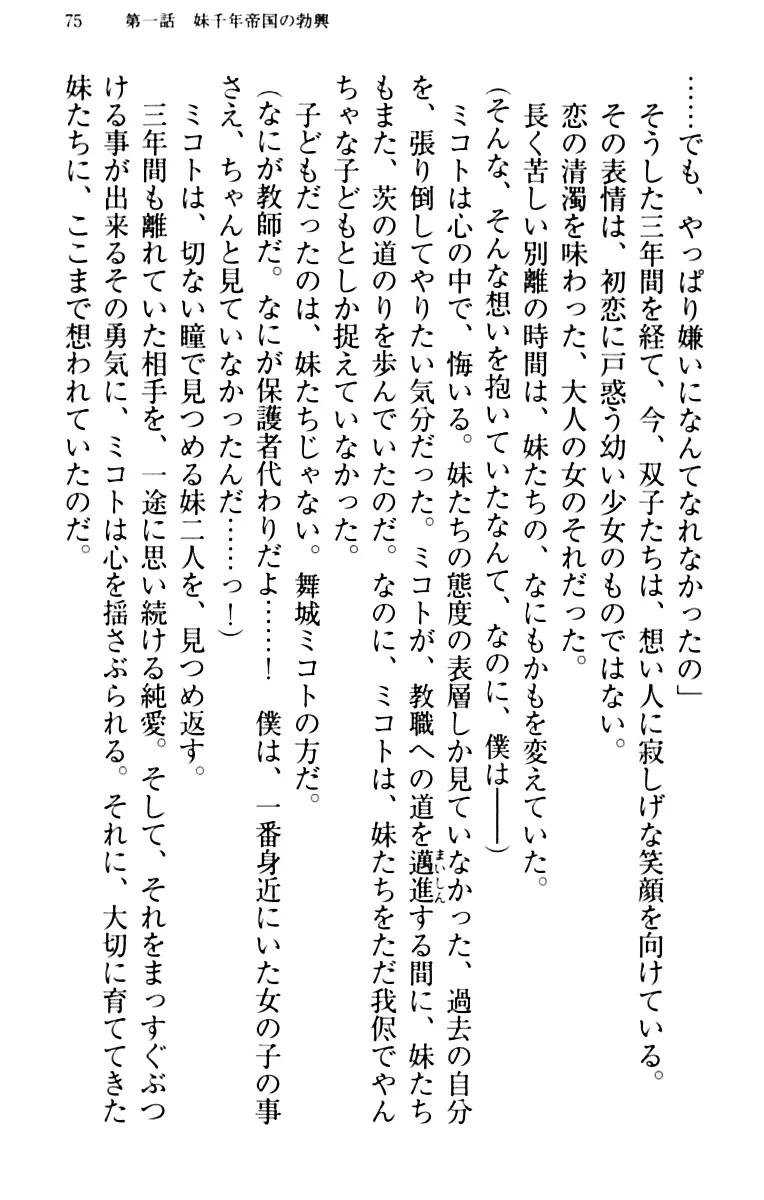 75　第一話　妹千年帝国の勃興
……でも、やっぱり嫌いになんてなれなかったの」
そうした三年間を経て、今、双子たちは、想い人に寂しげな笑顔を向けている。
その表情は、初恋に戸惑う幼い少女のものではない。
恋の清濁を味わった、大人の女のそれだった。
長く苦しい別離の時間は、妹たちの、なにもかもを変えていた。
（そんな、そんな想いを抱いていたなんて、なのに、僕は――）
ミコトは心の中で、悔いる。妹たちの態度の表層しか見ていなかった、過去の自分
を、張り倒してやりたい気分だった。ミコトが、教職への道を邁進まいしんする間に、妹たち
もまた、茨の道のりを歩んでいたのだ。なのに、ミコトは、妹たちをただ我侭でやん
ちゃな子どもとしか捉えていなかった。
子どもだったのは、妹たちじゃない。舞城ミコトの方だ。
（なにが教師だ。なにが保護者代わりだよ……！　僕は、一番身近にいた女の子の事
さえ、ちゃんと見ていなかったんだ……っ！）
ミコトは、切ない瞳で見つめる妹二人を、見つめ返す。
三年間も離れていた相手を、一途に思い続ける純愛。そして、それをまっすぐぶつ
ける事が出来るその勇気に、ミコトは心を揺さぶられる。それに、大切に育ててきた
妹たちに、ここまで想われていたのだ。